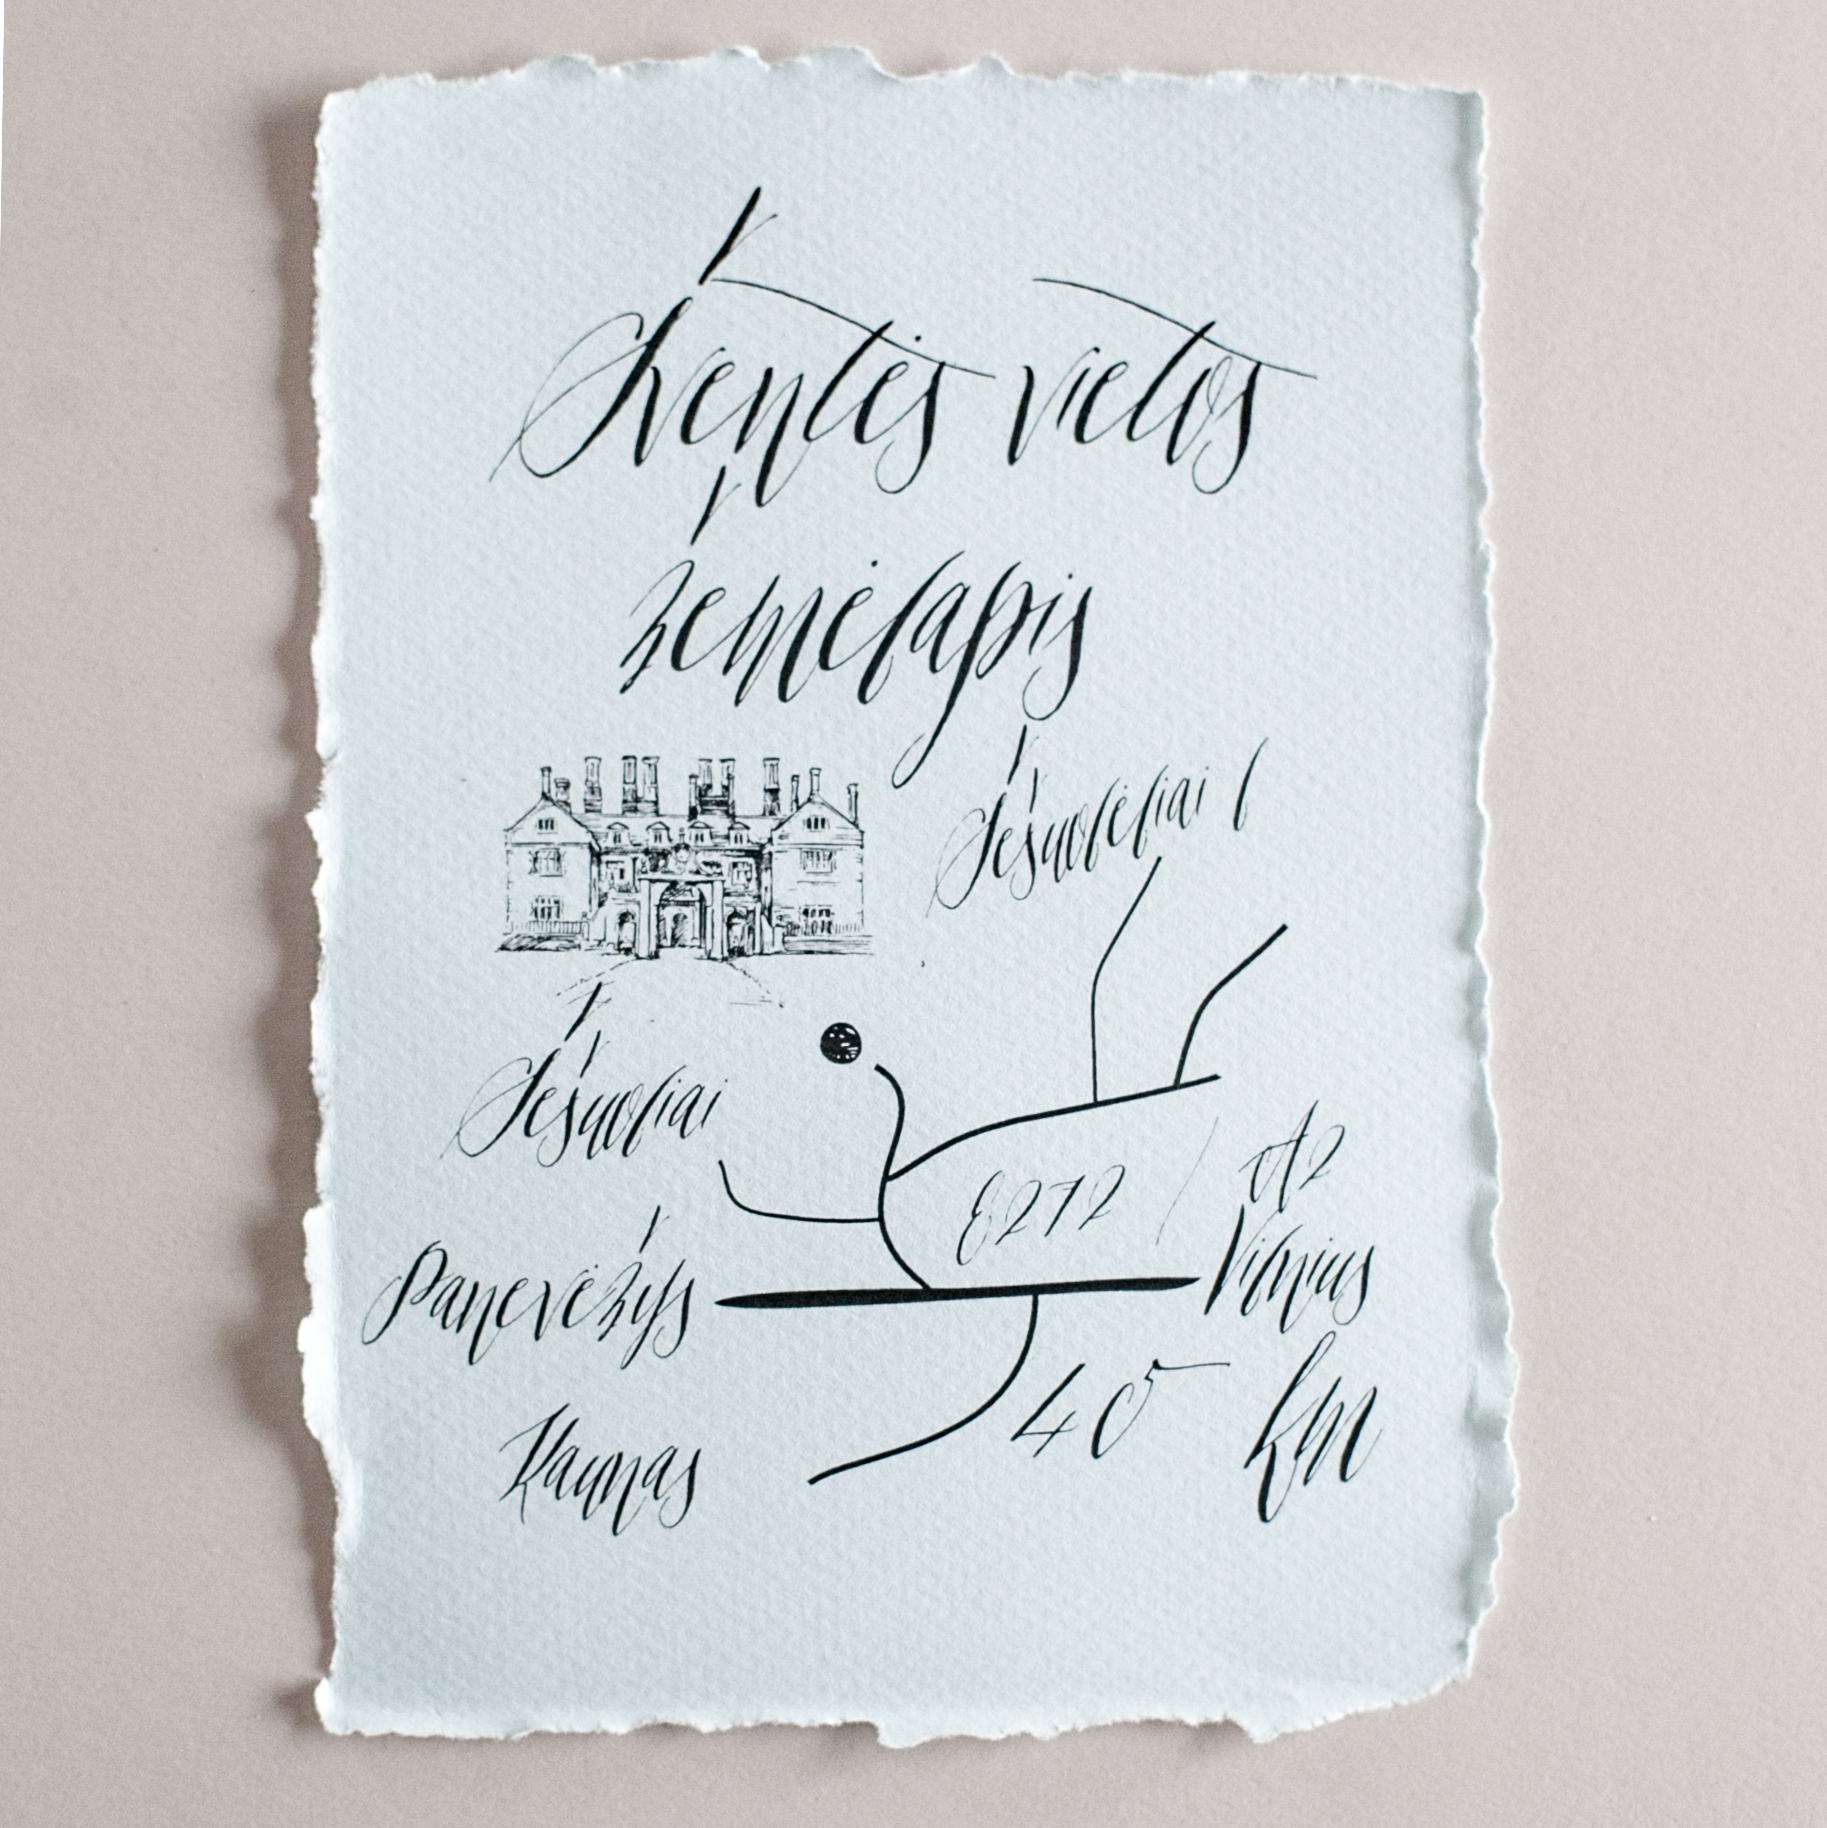 Šventės vietos
žemėlapis
Šešuolėliai I
Šešuoliai
E272 / A2
Panevėžys
Vilnius
Kaunas
45 km